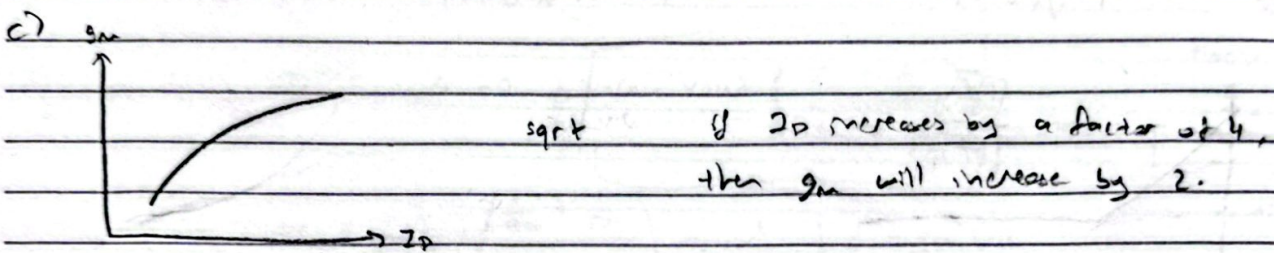 c)
gm
sqrt if ID increases by a factor of 4,
then gm will increase by 2.
ID